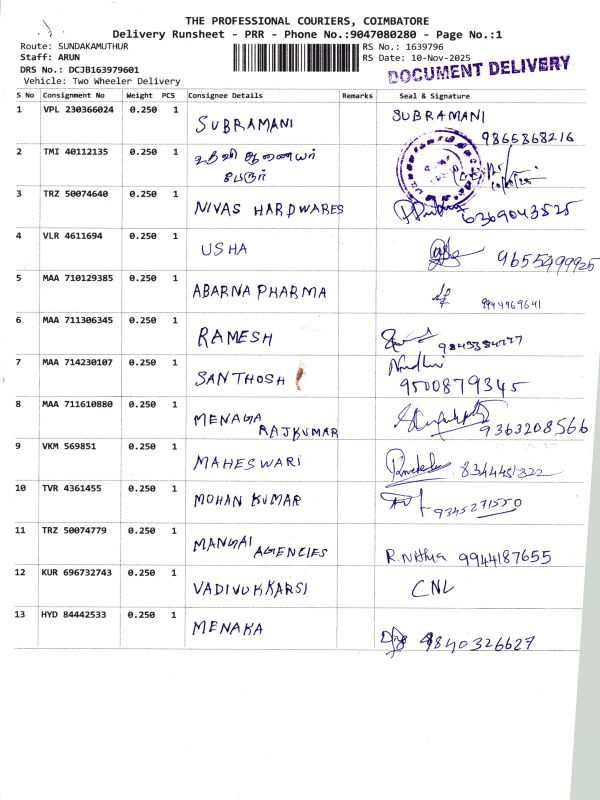 THE PROFESSIONAL COURIERS, COIMBATORE
Delivery Runsheet - PRR - Phone No.:9047080280 - Page No.:1
Route: SUNDAKAMUTHUR
RS No.: 1639796
Staff: ARUN
RS Date: 10-Nov-2025
DRS No.: DCJB163979601
Vehicle: Two Wheeler Delivery
DOCUMENT DELIVERY
S No Consignment No Weight PCS Consignee Details Remarks Seal & Signature
1 VPL 230366024 0.250 1 SUBRAMANI SUBRAMANI
9865868216
2 TMI 40112135 0.250 1 உதவி ஆணையர்
பேரூர்
3 TRZ 50074640 0.250 1 NIVAS HARDWARES 6369043525
4 VLR 4611694 0.250 1 USHA 9655499925
5 MAA 710129385 0.250 1 ABARNA PHARMA 9944969641
6 MAA 711306345 0.250 1 RAMESH
7 MAA 714230107 0.250 1 SANTHOSH Nandhi
9500879345
8 MAA 711610880 0.250 1 MENAGA
RAJKUMAR 9363208566
9 VKM 569851 0.250 1 MAHESWARI 8344451322
10 TVR 4361455 0.250 1 MOHAN KUMAR 9345271550
11 TRZ 50074779 0.250 1 MANGAI
AGENCIES R.Nithya 9944187655
12 KUR 696732743 0.250 1 VADIVUKKARSI CNL
13 HYD 84442533 0.250 1 MENAKA 9840326627